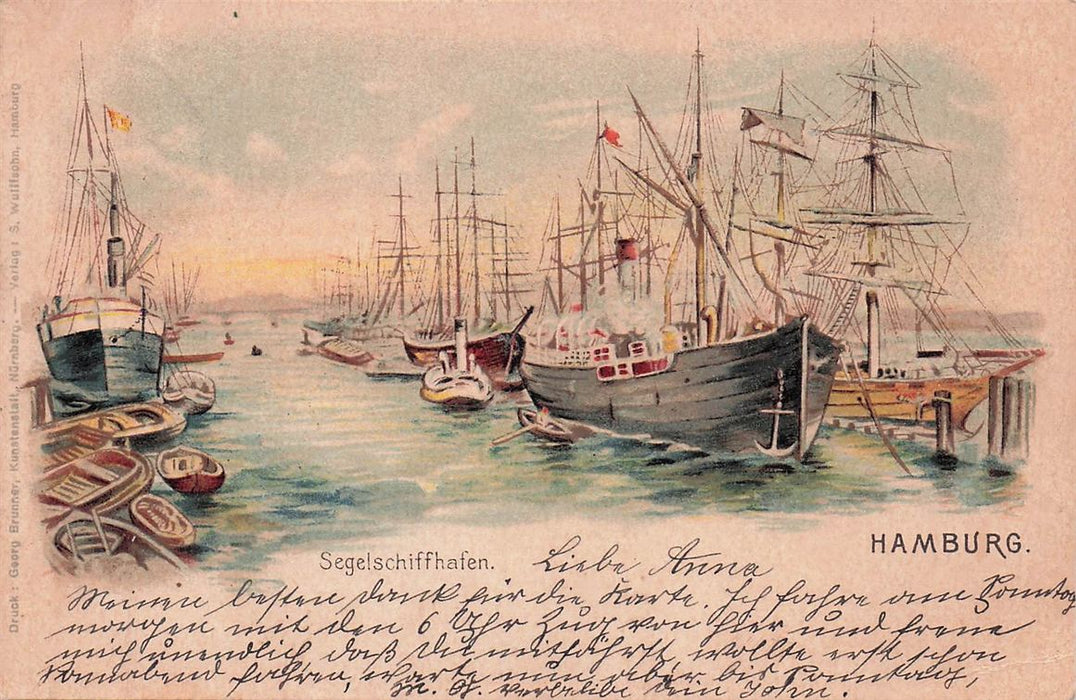 Druck : Georg Brunner, Kunstanstalt, Nürnberg. — Verlag : S. Wulffsohn, Hamburg
HAMBURG.
Segelschiffhafen.
Liebe Anna
Meinen besten Dank für die Karte. Ich fahre am Sonntag
morgen mit den 6 Uhr Zug von hier und freue
mich unendlich daß Du mitfährst, wollte erst schon
Sonnabend fahren, warte nun aber bis Sonntag,
verbleibe dein John.